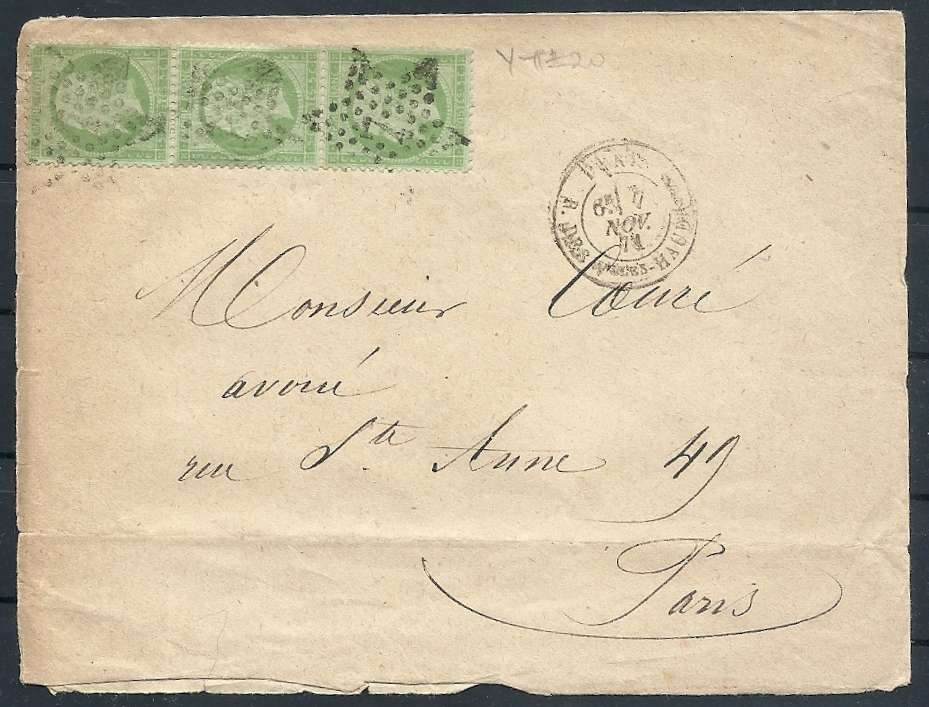 Y-TE 20
PARIS
R. DES VLES-HAUDtes
6E/ 7
NOV.
71
Monsieur Couré
avoué
rue Ste Anne 49
Paris